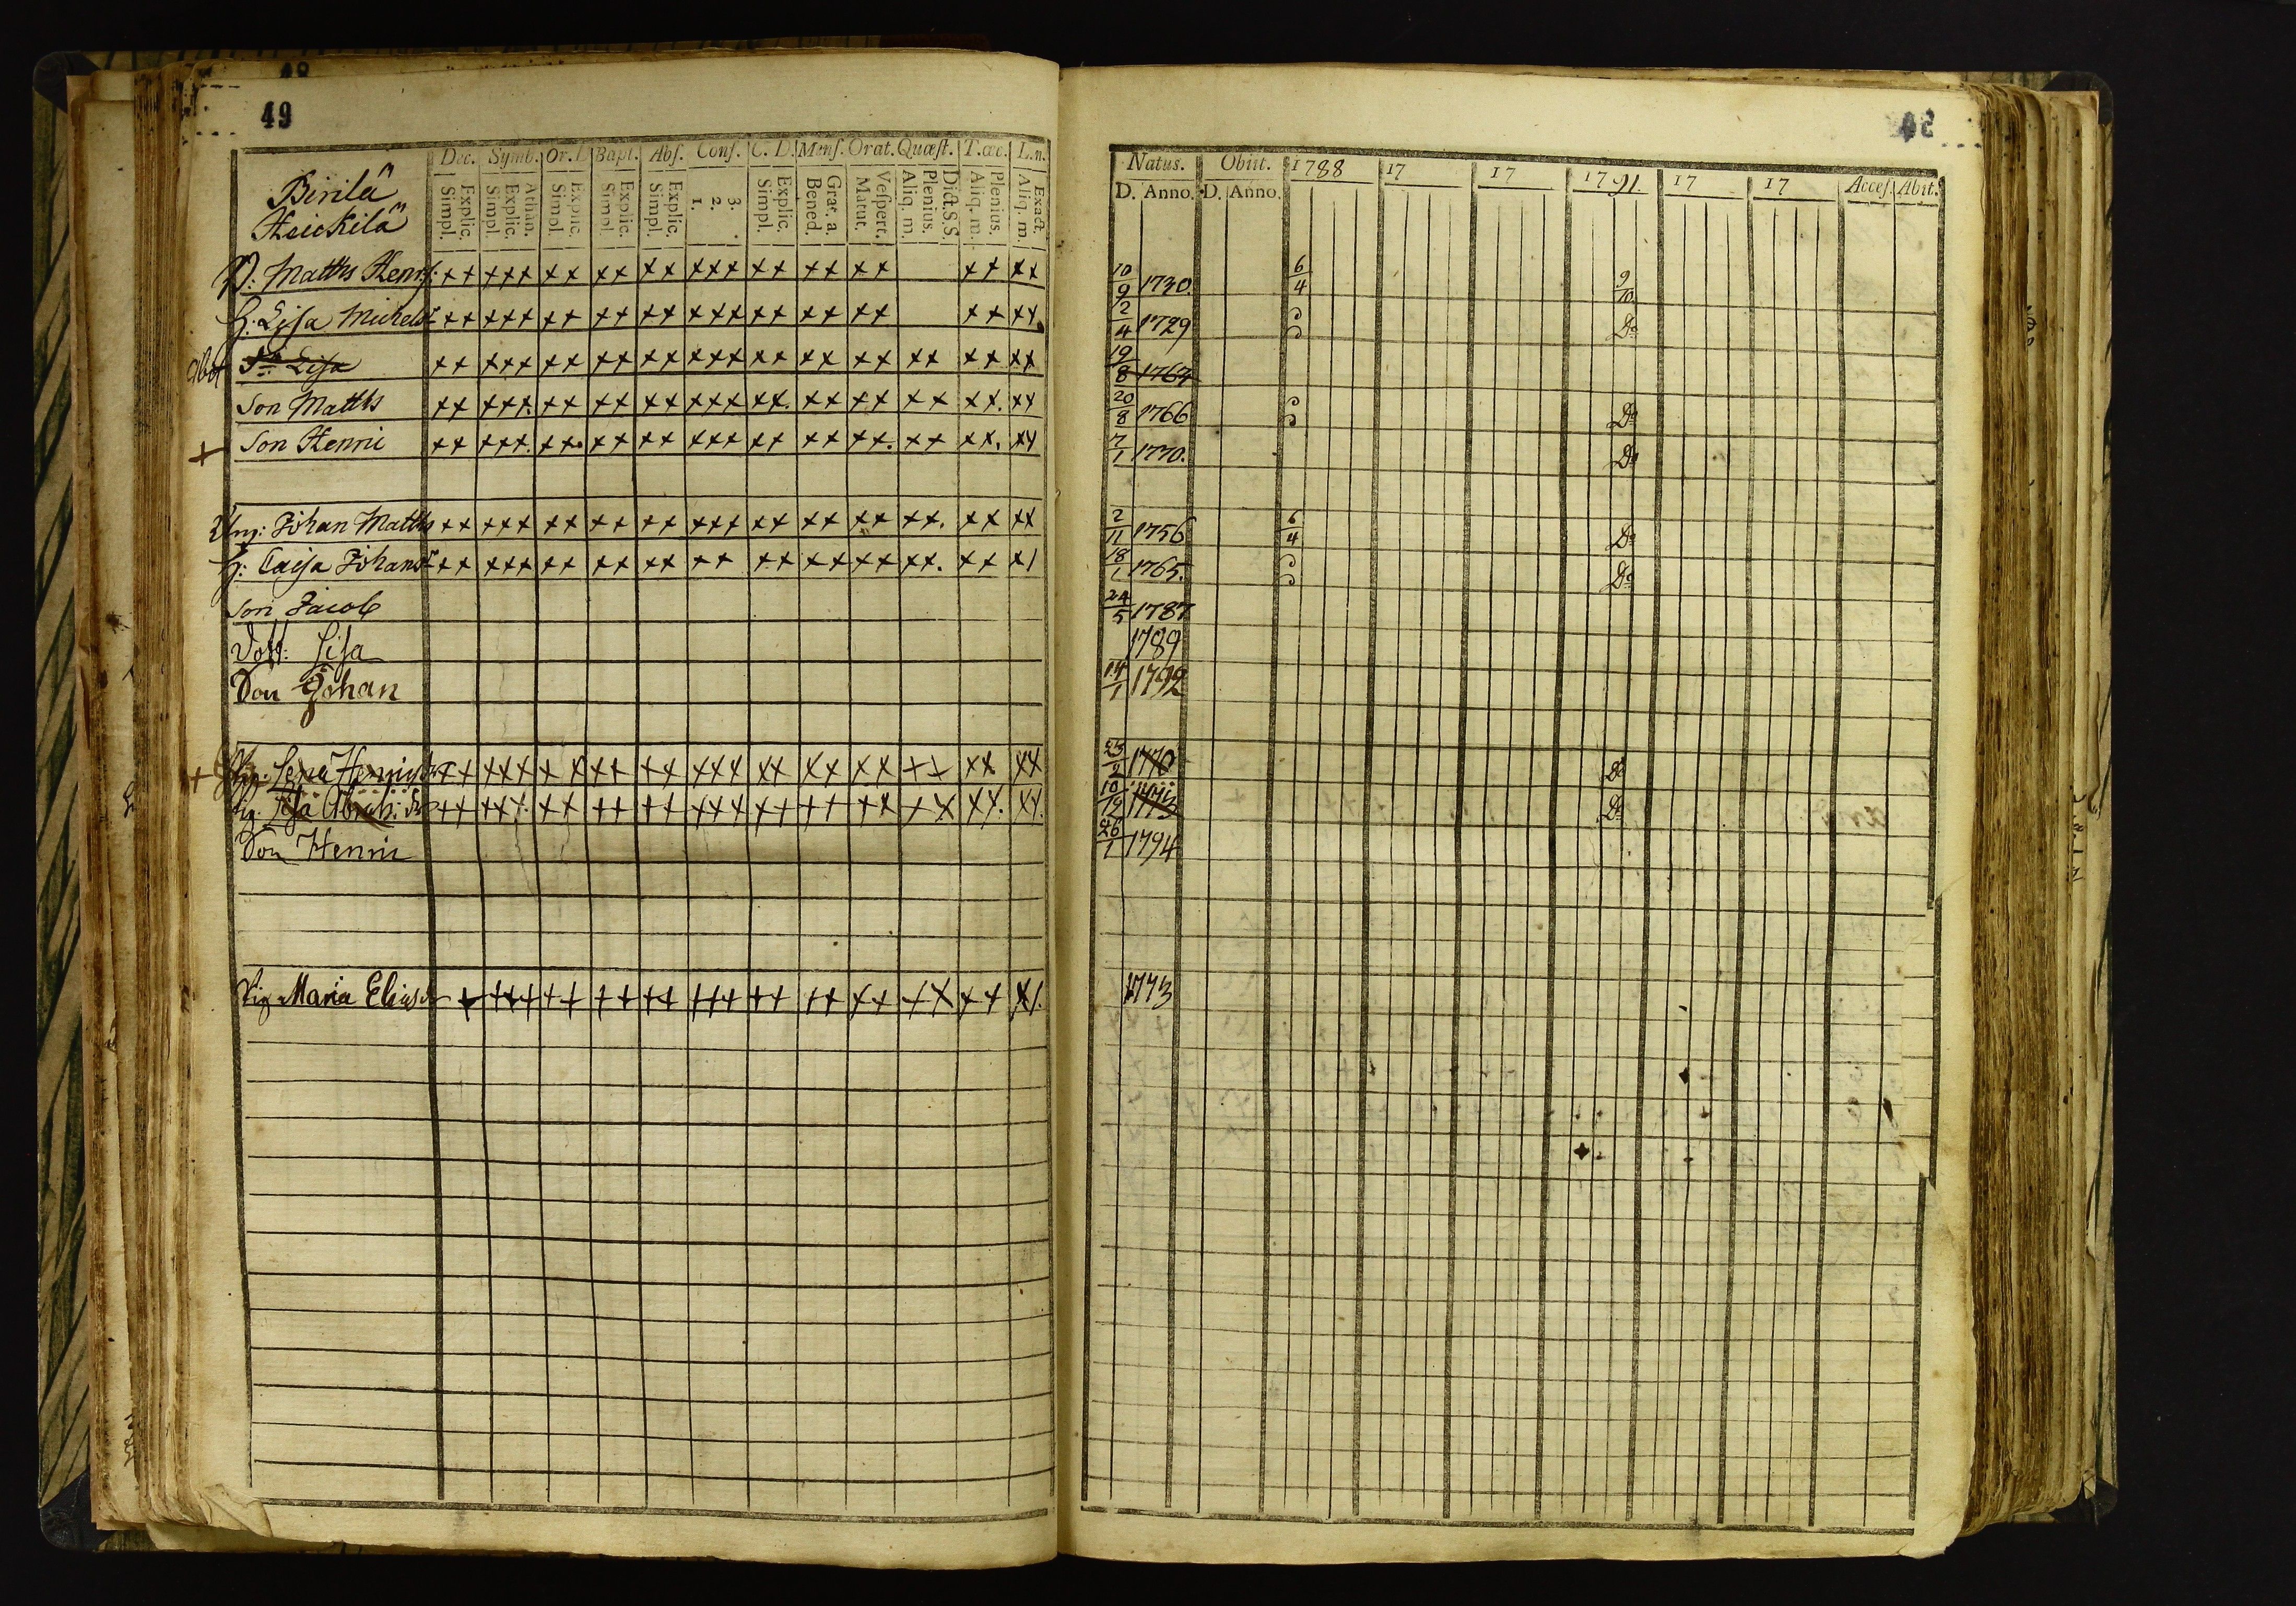 48
49
Dec. Symb. Or. D Bapt. Abſ. Conf. C. D. Menſ. Orat. Quæſt. T. œc. L. n.
Explic. Simpl. Athan. Explic. Simpl. Explic. Simpl. Explic. Simpl. Explic. Simpl. 3. 2. 1. Explic. Simpl. Grat. a. Bened. Veſpert. Matut. Dict. S. S. Plenius. Aliq. m. Plenius. Aliq. m. Exact. Aliq. m.
Birilä
Heickilä
Matths Henr: ++ +++ ++ ++ ++ +++ ++ ++ ++ ++ ++
H: Lisa Michelsdr ++ +++ ++ ++ ++ +++ ++ ++ ++ ++ ++
Lisa ++ +++ ++ ++ ++ +++ ++ ++ ++ ++ ++ ++
Son Matths ++ +++. ++ ++ ++ +++ ++. ++ ++ ++ ++. ++
+ Son Henric ++ +++. ++. ++ ++ +++ ++ ++ ++. ++ ++. ++
Johan Matths ++ +++ ++ ++ ++ +++ ++ ++ ++ ++. ++ ++
H: Caisa Johansdr ++ +++ ++ ++ ++ ++ ++ ++ ++ ++. ++ +1
Son Jacob
Dott: Lisa
Son Johan
+ Lena Henrigsdr ++ +++ ++ ++ ++ +++ ++ ++ ++ ++ ++ ++
Pig. Abrah: dr ++ +++. ++ ++ ++ +++ ++ ++ ++ ++ ++. ++.
Son Henric
Pig Maria Eliasdr + +++ ++ ++ ++ +++ ++ ++ ++ ++ ++ +1.
Natus. Obiit. 1788 17 17 1791. 17 17 Acceſ. Abit.
D. Anno. D. Anno.
10/9 1730. 6/4 9/10
2/4 1729 Do
19/8 1763
20/8 1766 Do
7/1 1770. Do
2/11 1756 6/4 Do
18/1 1765. Do
24/5 1787
1789
14/1 1792
25/2 1770 Do
10/12 1773 Do
26/1 1794
1773